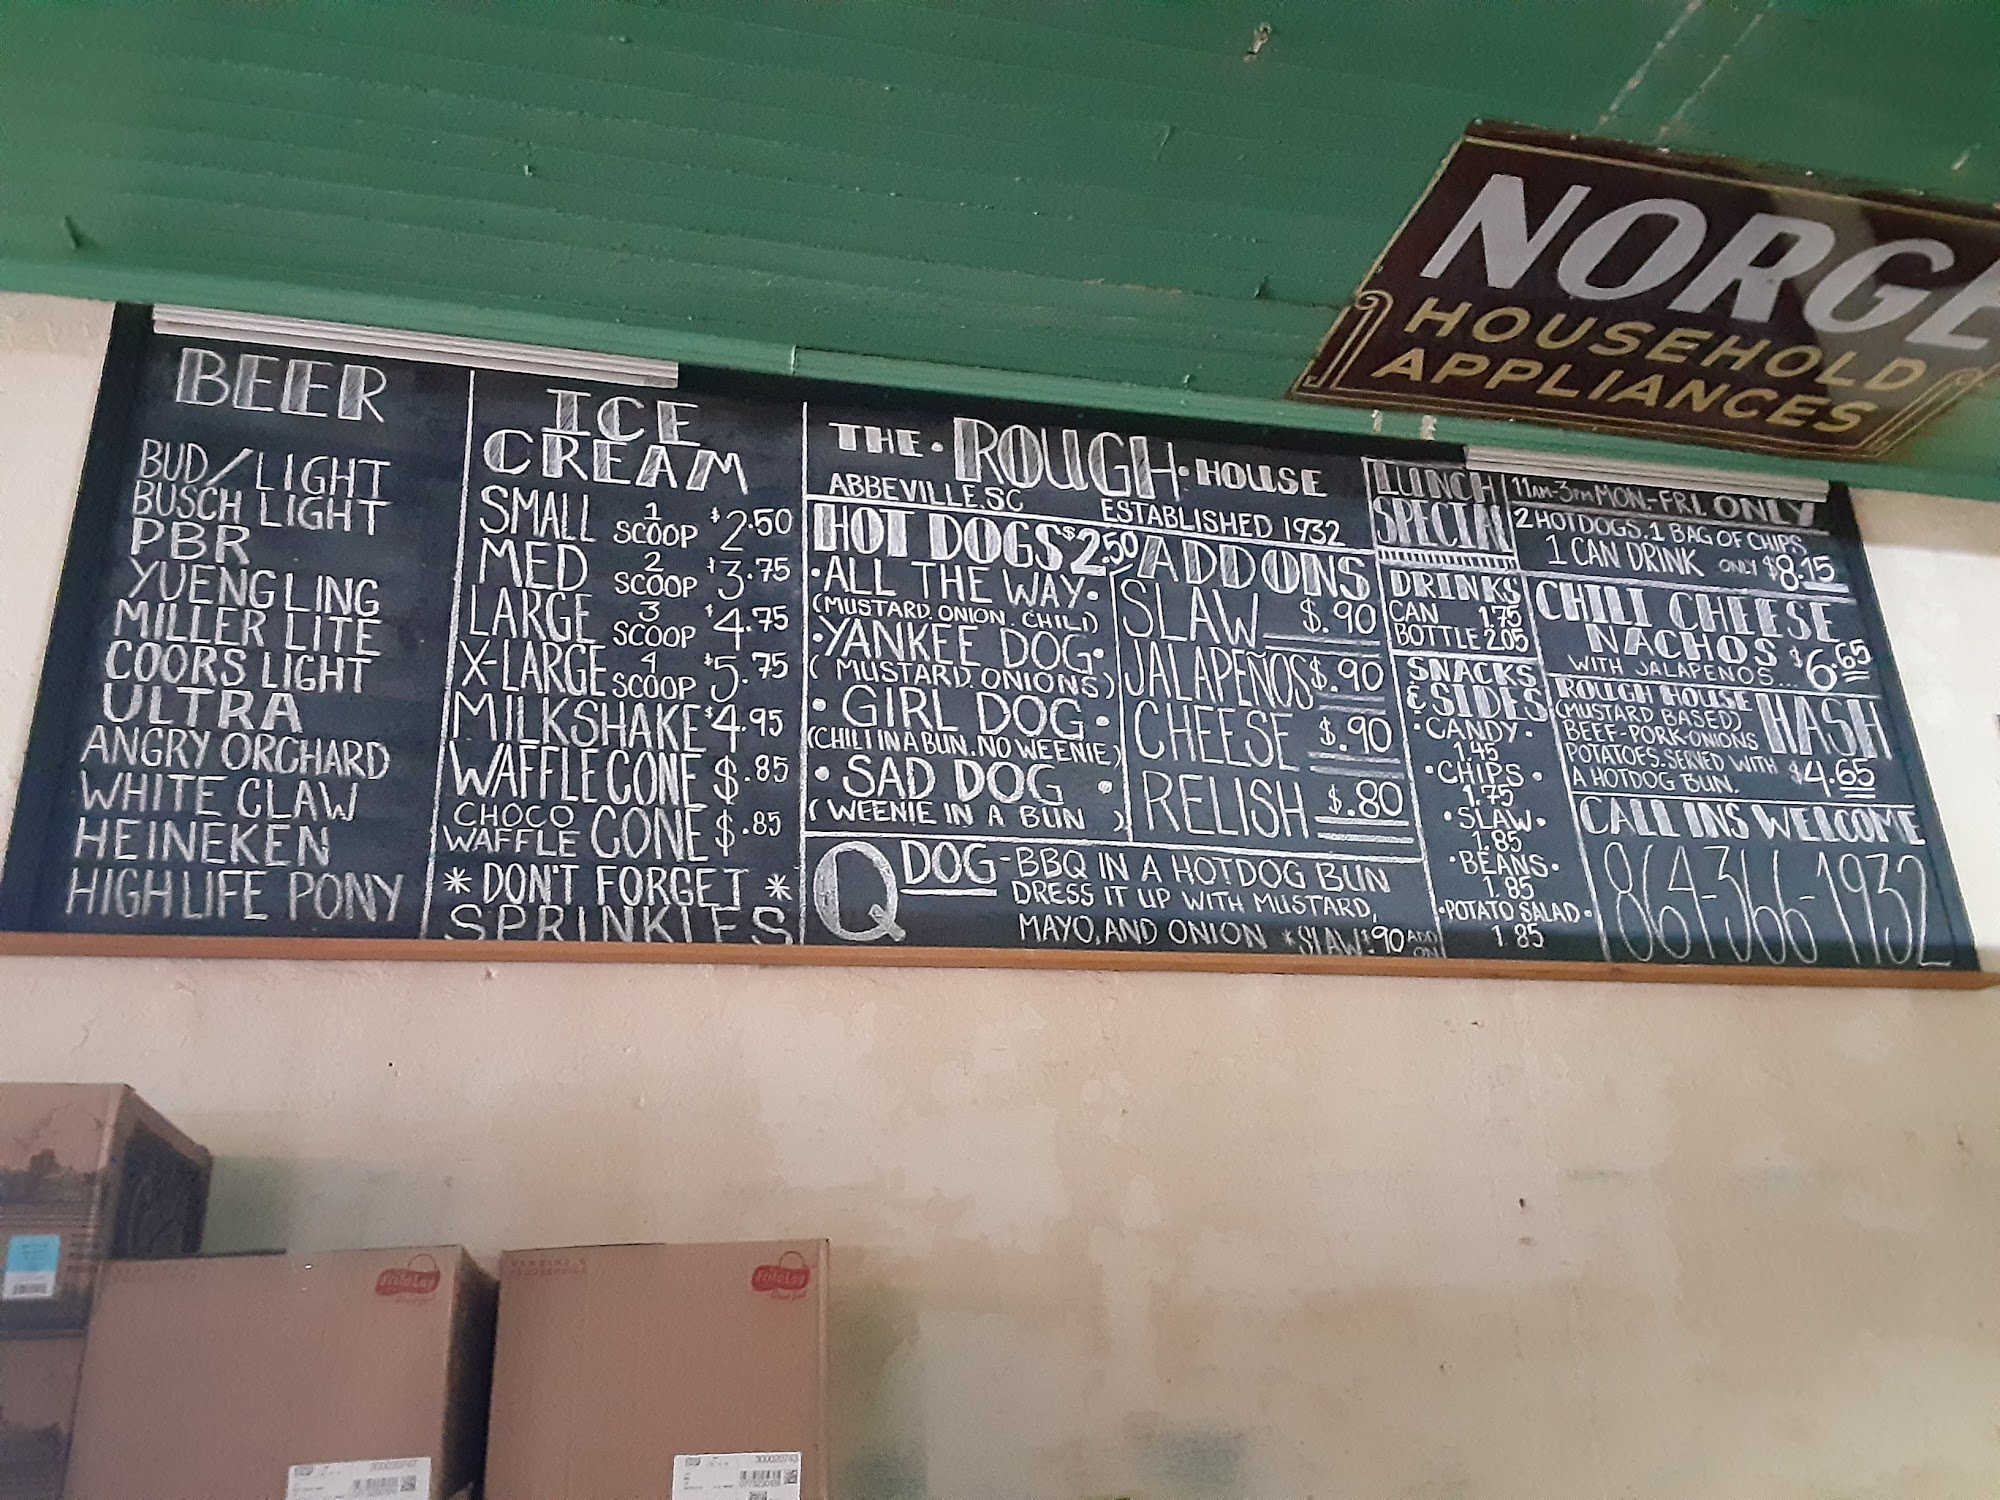 NORGE
HOUSEHOLD
APPLIANCES
BEER
BUD/LIGHT
BUSCH LIGHT
PBR
YUENGLING
MILLER LITE
COORS LIGHT
ULTRA
ANGRY ORCHARD
WHITE CLAW
HEINEKEN
HIGHLIFE PONY
ICE
CREAM
SMALL 1 SCOOP $2.50
MED 2 SCOOP $3.75
LARGE 3 SCOOP $4.75
X-LARGE 4 SCOOP $5.75
MILKSHAKE $4.95
WAFFLE CONE $.85
CHOCO WAFFLE CONE $.85
* DON'T FORGET *
SPRINKLES
THE · ROUGH · HOUSE
ABBEVILLE, SC ESTABLISHED 1932
HOT DOGS $2.50
· ALL THE WAY ·
(MUSTARD. ONION. CHILI)
· YANKEE DOG ·
(MUSTARD. ONIONS)
· GIRL DOG ·
(CHILI IN A BUN. NO WEENIE)
· SAD DOG ·
(WEENIE IN A BUN)
ADD ONS
SLAW $.90
JALAPEÑOS $.90
CHEESE $.90
RELISH $.80
Q DOG - BBQ IN A HOTDOG BUN
DRESS IT UP WITH MUSTARD,
MAYO, AND ONION *SLAW $.90 ADD ON
LUNCH
SPECIAL
11AM-3PM MON.-FRI. ONLY
2 HOTDOGS. 1 BAG OF CHIPS
1 CAN DRINK ONLY $8.15
DRINKS
CAN 1.75
BOTTLE 2.05
SNACKS
& SIDES
· CANDY ·
1.45
· CHIPS ·
1.75
· SLAW ·
1.85
· BEANS ·
1.85
· POTATO SALAD ·
1.85
CHILI CHEESE
NACHOS $6.65
WITH JALAPENOS....
ROUGH HOUSE HASH
(MUSTARD BASED)
BEEF-PORK-ONIONS
POTATOES. SERVED WITH
A HOTDOG BUN. $4.65
CALL INS WELCOME
864-366-1932
FritoLay
FritoLay
300020747
300020743